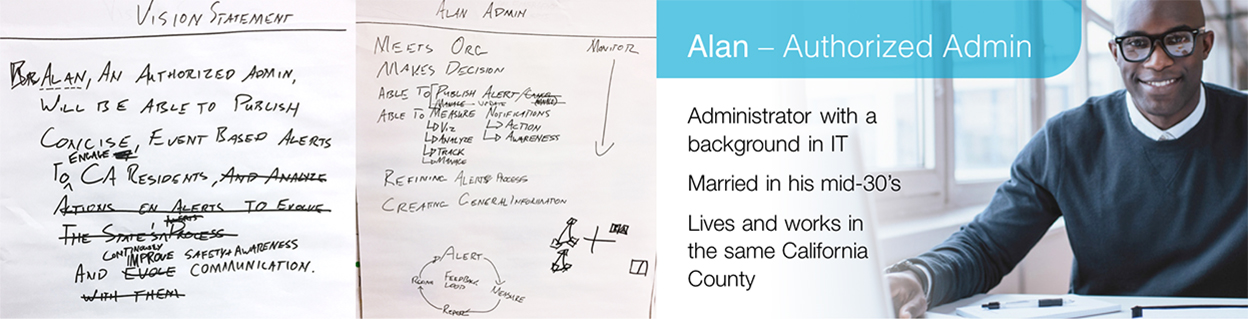 VISION STATEMENT
ALAN, AN AUTHORIZED ADMIN,
WILL BE ABLE TO PUBLISH
CONCISE, EVENT BASED ALERTS
ENGAGE
TO CA RESIDENTS, AND ANALYZE
ACTIONS ON ALERTS TO EVOLVE
ALERTS
THE STATE'S PROCESS
CONTINUOUSLY IMPROVE SAFETY & AWARENESS
AND EVOLVE COMMUNICATION.
WITH THEM
ALAN ADMIN
MEETS ORG
MAKES DECISION
ABLE TO PUBLISH ALERT/CANCEL
MANAGE UPDATE
ABLE TO MEASURE NOTIFICATIONS
VIZ
ANALYZE
TRACK
MANAGE
ACTION
AWARENESS
REFINING ALERTS PROCESS
CREATING GENERAL INFORMATION
MONITOR
ALERT
FEEDBACK
LOOP
MEASURE
REPORT
Alan – Authorized Admin
Administrator with a
background in IT
Married in his mid-30's
Lives and works in
the same California
County